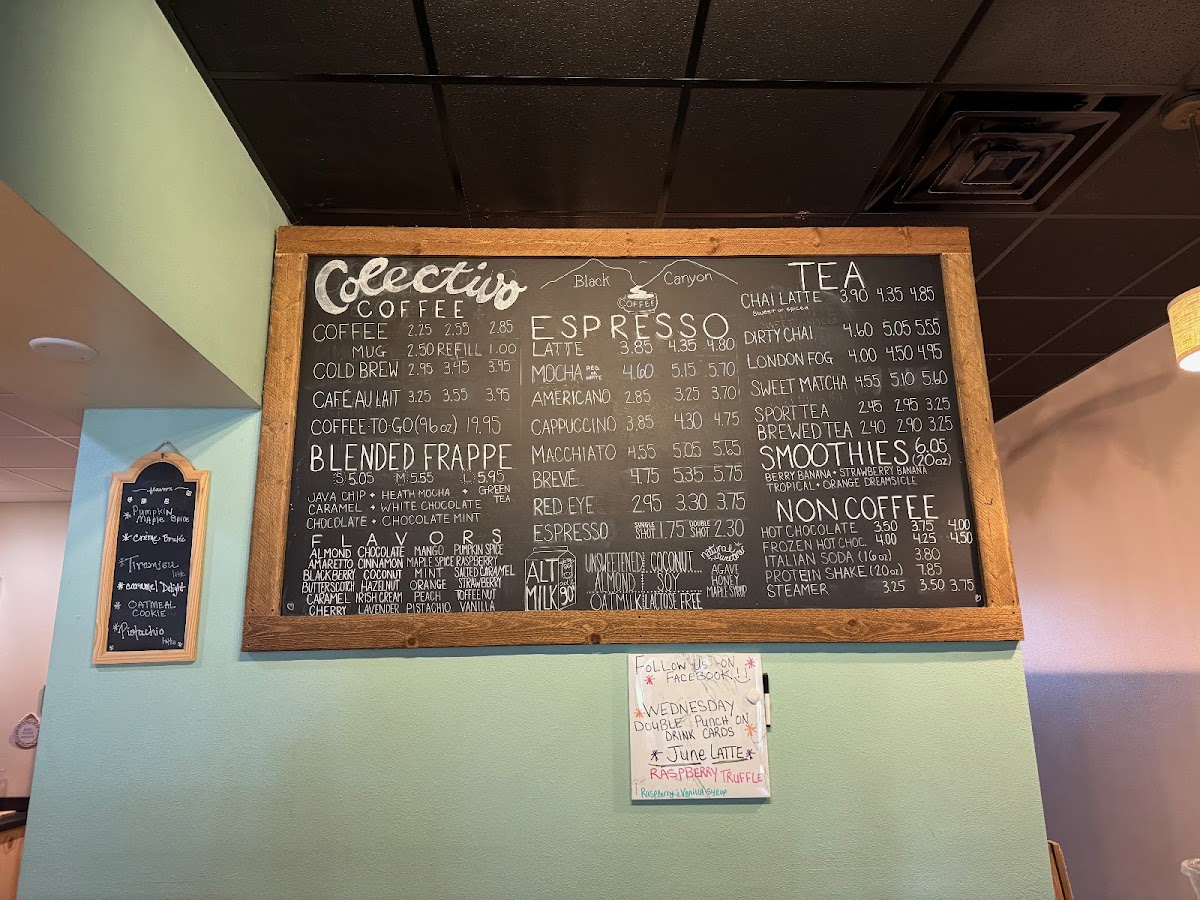 Colectivo
COFFEE
COFFEE 2.25 2.55 2.85
MUG 2.50 REFILL 1.00
COLD BREW 2.95 3.45 3.95
CAFÉ AU LAIT 3.25 3.55 3.95
COFFEE-TO-GO (96 oz) 19.95
BLENDED FRAPPE
S 5.05 M 5.55 L 5.95
JAVA CHIP • HEATH MOCHA • GREEN TEA
CARAMEL • WHITE CHOCOLATE
CHOCOLATE • CHOCOLATE MINT
FLAVORS
ALMOND CHOCOLATE MANGO PUMPKIN SPICE
AMARETTO CINNAMON MAPLE SPICE RASPBERRY
BLACKBERRY COCONUT MINT SALTED CARAMEL
BUTTERSCOTCH HAZELNUT ORANGE STRAWBERRY
CARAMEL IRISH CREAM PEACH TOFFEE NUT
CHERRY LAVENDER PISTACHIO VANILLA
Black Canyon
COFFEE
ESPRESSO
LATTE 3.85 4.35 4.80
MOCHA REG. OR WHITE 4.60 5.15 5.70
AMERICANO 2.85 3.25 3.70
CAPPUCCINO 3.85 4.30 4.75
MACCHIATO 4.55 5.05 5.65
BREVÉ 4.75 5.35 5.75
RED EYE 2.95 3.30 3.75
ESPRESSO SINGLE SHOT 1.75 DOUBLE SHOT 2.30
ALT MILK 90¢
UNSWEETENED COCONUT
ALMOND SOY
OATMILK LACTOSE FREE
natural sweeteners
AGAVE
HONEY
MAPLE SYRUP
TEA
CHAI LATTE 3.90 4.35 4.85
sweet or spiced
DIRTY CHAI 4.60 5.05 5.55
LONDON FOG 4.00 4.50 4.95
SWEET MATCHA 4.55 5.10 5.60
SPORT TEA 2.45 2.95 3.25
BREWED TEA 2.40 2.90 3.25
SMOOTHIES 6.05 (20oz)
BERRY BANANA • STRAWBERRY BANANA
TROPICAL • ORANGE DREAMSICLE
NON COFFEE
HOT CHOCOLATE 3.50 3.75 4.00
FROZEN HOT CHOC. 4.00 4.25 4.50
ITALIAN SODA (16oz) 3.80
PROTEIN SHAKE (20oz) 7.85
STEAMER 3.25 3.50 3.75
flavors
Pumpkin
Maple Spice
Crème Brulé
Tiramisu
latte
caramel Delight
OATMEAL
COOKIE
Pistachio
latte
FOLLOW US ON
FACEBOOK!!
WEDNESDAY
DOUBLE PUNCH ON
DRINK CARDS
June LATTE
RASPBERRY TRUFFLE
Raspberry & Vanilla syrup